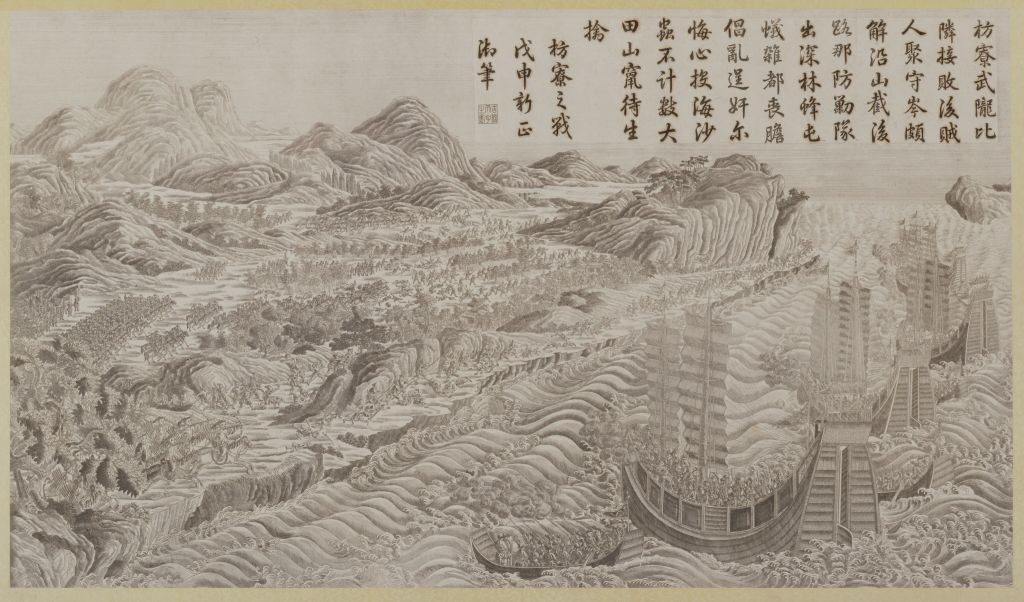 枋寮武隴比
隣接敗後賊
人聚守岑頗
解沿山截後
路那防勦隊
出深林蜂屯
蟻雜都喪膽
倡亂逞奸尔
悔心投海沙
蟲不计數大
田山竄待生
擒
枋寮之戰
戊申新正
御筆